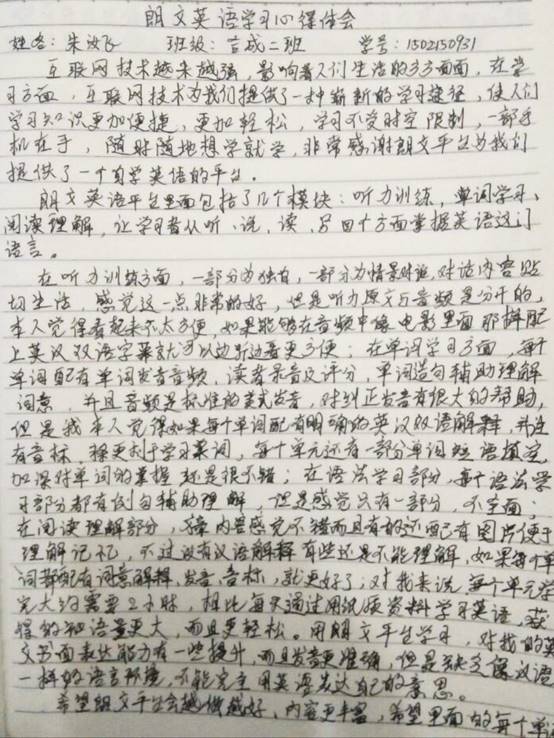 朗文英语学习心得体会
姓名：朱汝飞 班级：言成二班 学号：1502150931
互联网技术越来越强，影响着人们生活的方方面面，在学
习方面，互联网技术为我们提供了一种崭新的学习途径，使人们
学习知识更加便捷，更加轻松，学习不受时空限制，一部手
机在手，随时随地想学就学，非常感谢朗文平台为我们
提供了一个自学英语的平台。
朗文英语平台里面包括了几个模块：听力训练，单词学习、
阅读理解，让学习者从听、说，读，写四个方面掌握英语这门
语言。
在听力训练方面，一部分为独白，一部分为情景对说，对话内容贴
切生活，感觉这一点非常的好，但是听力原文与音频是分开的，
本人觉得看起来不太方便，如果能够在音频中像电影里面那样配
上英汉双语字幕就可以边听边看更方便；在单词学习方面，每个
单词配有单词发音音频，读者录音及评分，单词造句辅助理解
词意，并且音频是标准的美式发音，对纠正发音有很大的帮助，
但是我本人觉得如果每个单词配有明确的英汉双语解释，并注
有音标，将更利于学习单词，每个单元还有一部分单词短语填空，
加深对单词的掌握还是很不错；在语法学习部分，每个语法学
习部分都有例句辅助理解，但是感觉只有一部分，不全面，
在阅读理解部分，内容感觉不错而且有的还配有图片便于
理解记忆，不过没有汉语解释有些还是不能理解，如果每个单
词都配有词意解释，发音，音标，就更好了；对我来说，每个单元学
完大约需要2小时，相比每天通过用纸质资料学习英语，获
得的知语量更大，而且更轻松。用朗文平台学习，对我的英
文书面表达能力有一些提升，而且发音更准确，但是缺乏像汉语
一样的语言环境，不能完全用英语表达自己的意思。
希望朗文平台会越做越好，内容更丰富，希望里面的每个单